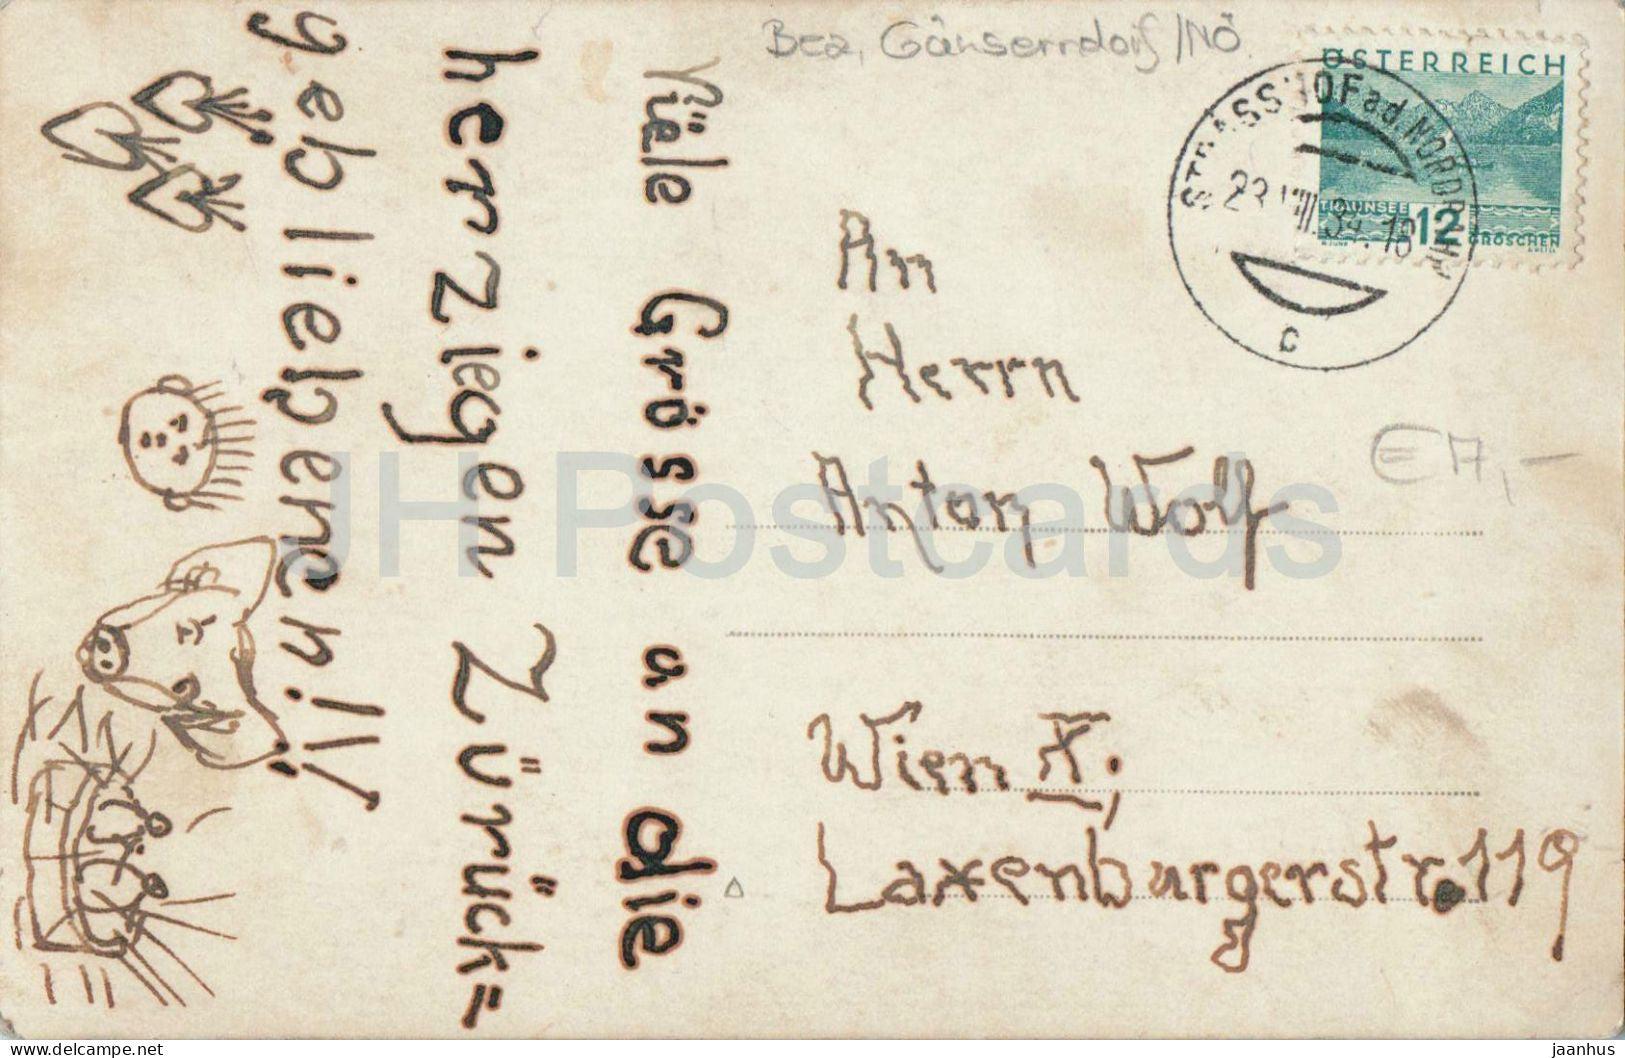 Bez. Gänserndorf /NÖ
ÖSTERREICH
TRAUNSEE
12
GROSCHEN
STRASSHOF a.d. NORDBAHN
23.VIII.34.18
c
Viele Grösse an die
herrzlegen Zürück=
geblliebenen!!!
An
Herrn
Anton Wolf
Wien X;
Laxenburgerstr. 119
€ 17,-
JH Postcards
delcampe.net
jaanhus